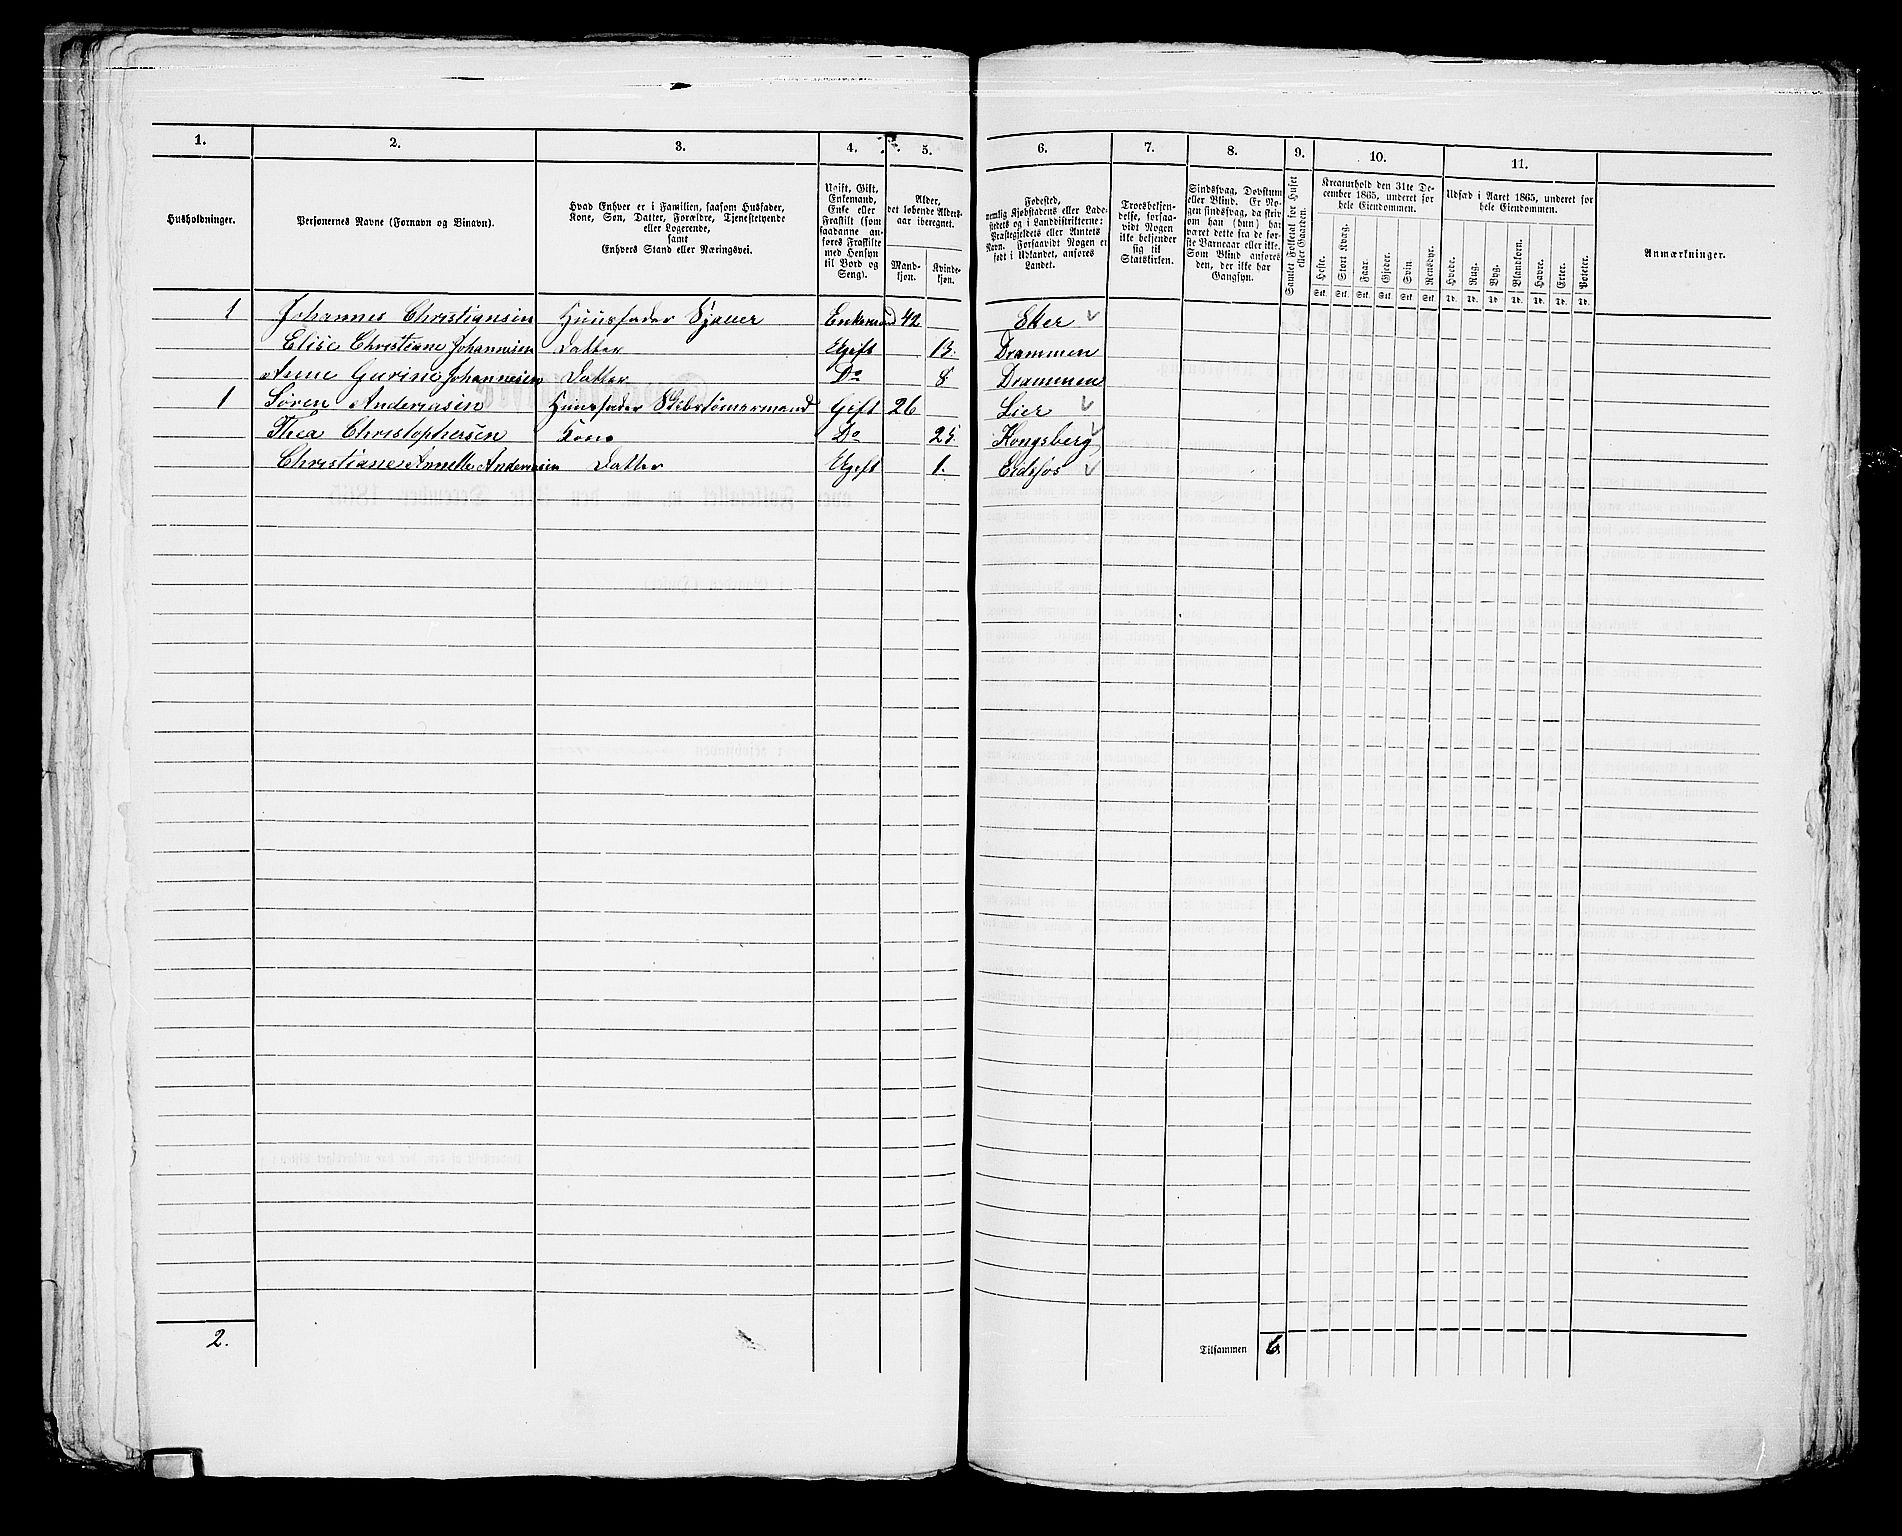 1. 2. 3. 4. 5. 6. 7. 8. 9. 10. 11.
Husholdninger.
Personernes Navne (Fornavn og Binavn).
Hvad Enhver er i Familien, saasom Husfader,
Kone, Søn, Datter, Forældre, Tjenestetyende
eller Logerende,
samt
Enhvers Stand eller Næringsvei.
Ugift, Gift,
Enkemand,
Enke eller
Fraskilt (som
saadanne an-
føres Fraskilte
med Hensyn
til Bord og
Seng).
Alder,
det løbende Alders-
aar iberegnet.
Mand-
kjøn.
Kvinde-
kjøn.
Fødested,
nemlig Kjøbstadens eller Lade-
stedets og i Landdistrikterne:
Præstegjeldets eller Amtets
Navn. Forsaavidt Nogen er
født i Udlandet, anføres
Landet.
Troesbekjen-
delse, forsaa-
vidt Nogen
ikke bekjender
sig til
Statskirken.
Sindssvag, Døvstum
eller Blind. Er No-
gen sindssvag, da skriv
om han (hun) har
været dette fra de før-
ste Barneaar eller ikke.
Som Blind anføres
den, der ikke har
Gangsyn.
Samlet Folketal for Huset
eller Gaarden.
Kreaturhold den 31te De-
cember 1865, underet for
hele Eiendommen.
Heste. Stort Kvæg. Faar. Gjeder. Svin. Rensdyr.
Stk. Stk. Stk. Stk. Stk. Stk.
Udsæd i Aaret 1865, underet for
hele Eiendommen.
Hvede. Rug. Byg. Blandkorn. Havre. Erter. Poteter.
Td. Td. Td. Td. Td. Td. Td.
Anmærkninger.
1 Johannes Christiansen Huusfader Sjauer Enkemand 42 Eker
Elise Christiane Johannesen Datter Ugift 13. Drammen
Anne Gurine Johannesen Datter Do 8 Drammen
1 Søren Anderssen Huusfader Skibstømermand Gift 26 Lier
Thea Christophersen Kone Do 25 Kongsberg
Christiane Annette Anderssen Datter Ugift 1. Eidsfos
2.
Tilsammen 6.